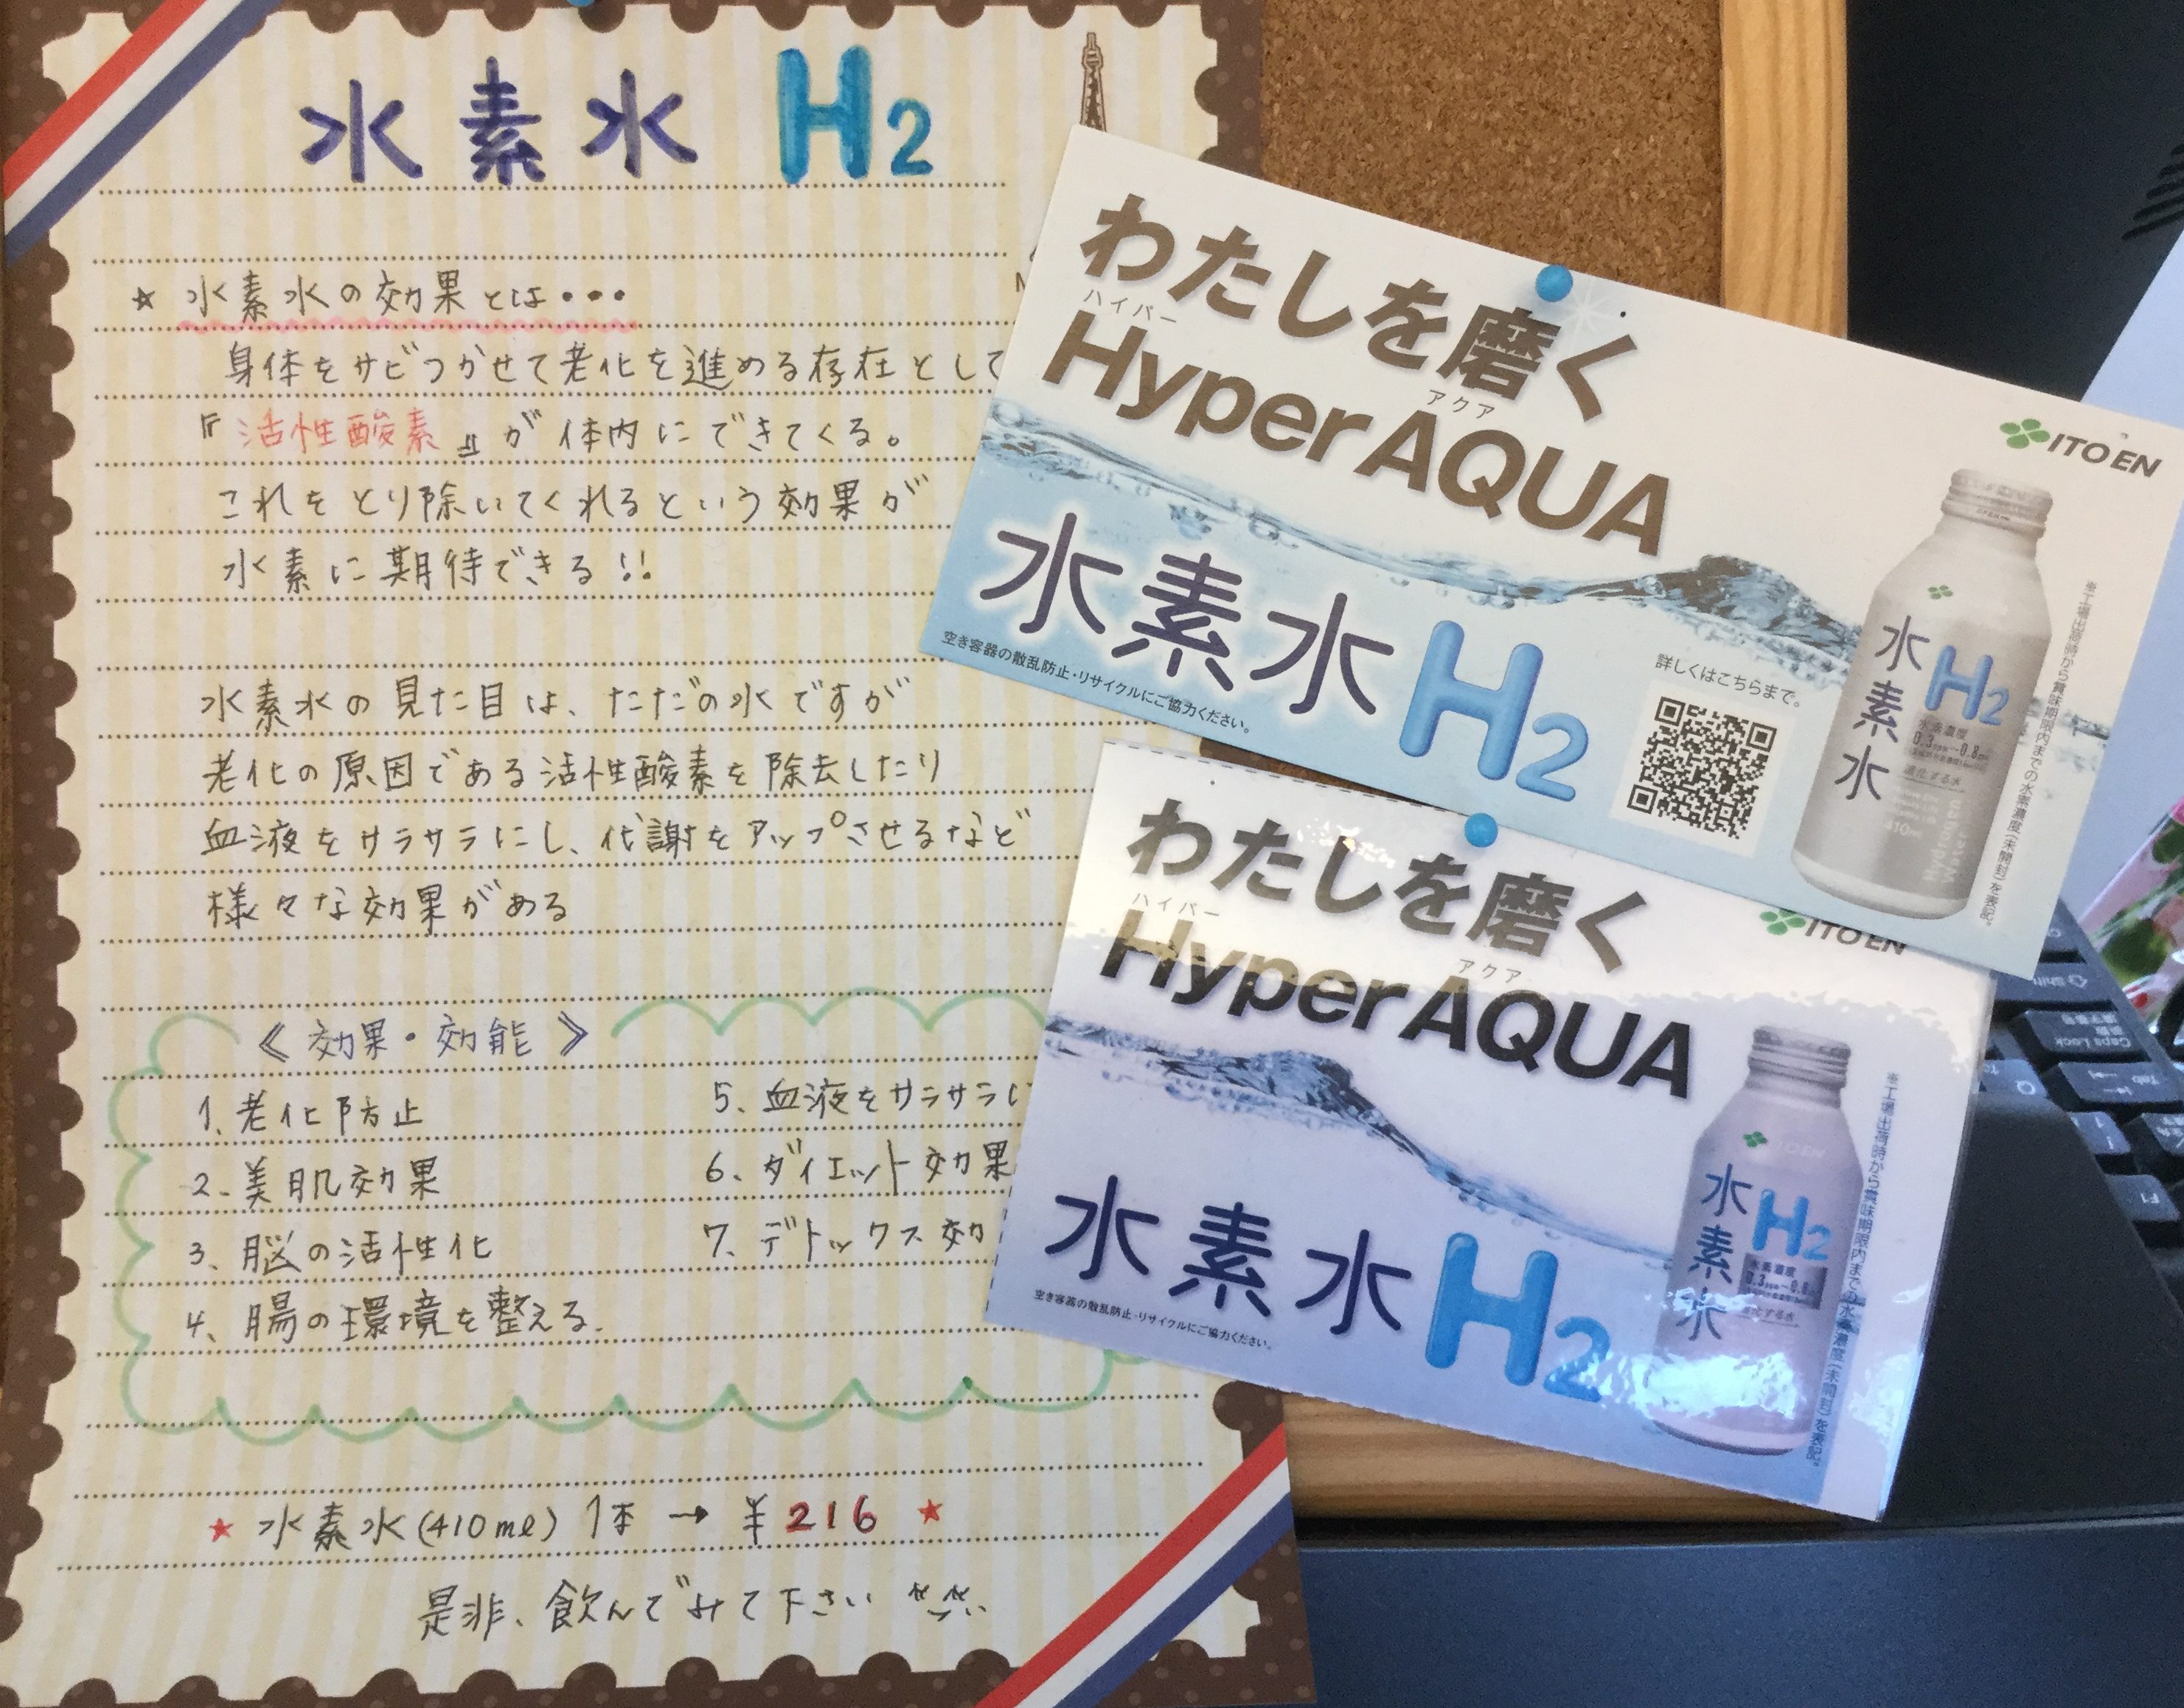 水素水 H2
★ 水素水の効果とは・・・
身体をサビつかせて老化を進める存在として
『活性酸素』が体内にできてくる。
これをとり除いてくれるという効果が
水素に期待できる!!
水素水の見た目は、ただの水ですが
老化の原因である活性酸素を除去したり
血液をサラサラにし、代謝をアップさせるなど
様々な効果がある
《効果・効能》
1. 老化防止
2. 美肌効果
3、脳の活性化
4、腸の環境を整える.
5、血液をサラサラに
6、ダイエット効果
7、デトックス効
★ 水素水(410ml) 1本 → ¥216 ★
是非、飲んでみて下さい
わたしを磨く
ハイパー アクア
HyperAQUA
水素水H2
空き容器の散乱防止・リサイクルにご協力ください。
詳しくはこちらまで。
ITO EN
水素水 H2
水素濃度
進化する水
410ml
Hydrogen Water
※工場出荷時から賞味期限内までの水素濃度(未開封)を表記。
わたしを磨く
ハイパー アクア
HyperAQUA
水素水H2
空き容器の散乱防止・リサイクルにご協力ください。
ITO EN
水素水 H2
水素濃度
※工場出荷時から賞味期限内までの水素濃度(未開封)を表記。
Shift
Caps Lock
Tab
Q
F1